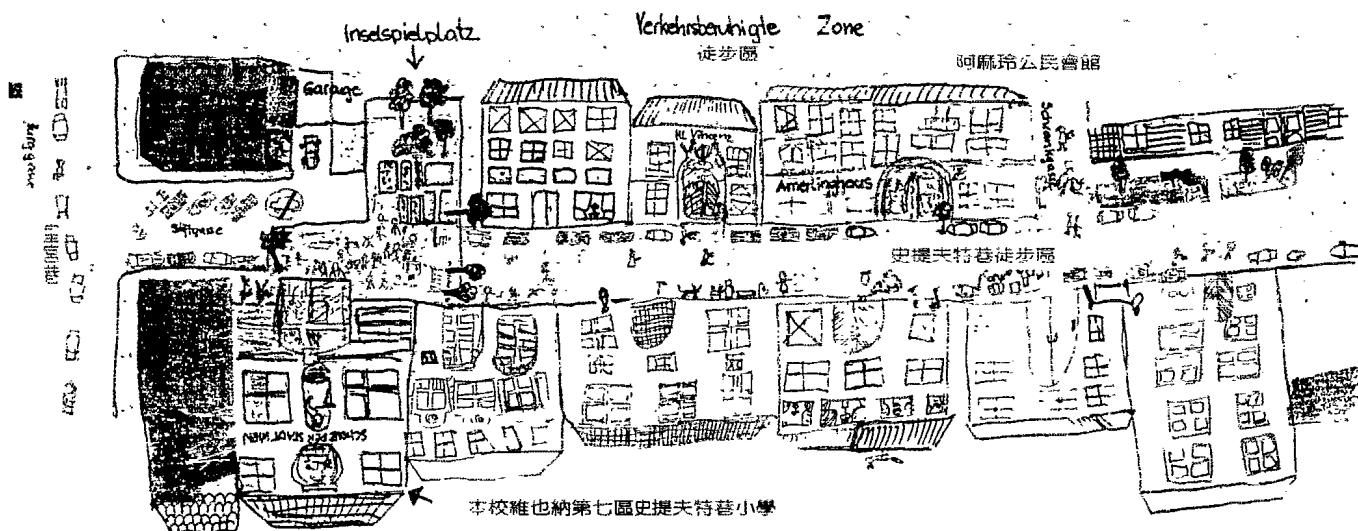 Inselspielplatz
Verkehrsberuhigte Zone
徒步區
阿麻玲公民會館
Garage
Burggasse
Amerlinghaus
Stiftgasse
史提夫特巷徒步區
SCHULE DER STADT WIEN
本校維也納第七區史提夫特巷小學